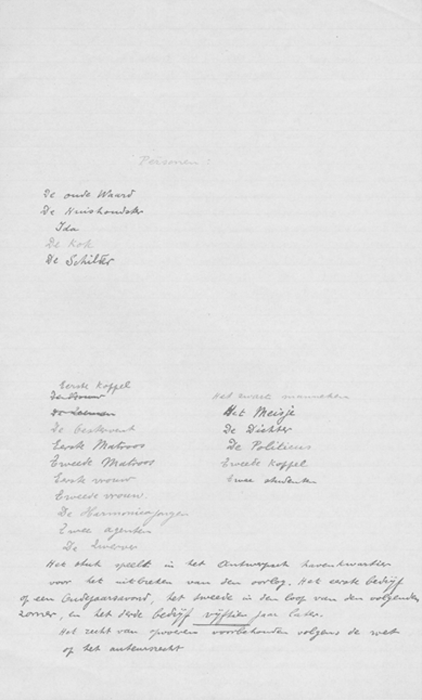 Personen:
De oude Waard
De Huishoudster
Ida
De Kok
De Schilder
Eerste Koppel
De
Eerste Matroos
Tweede Matroos
Eerste vrouw
Tweede vrouw.
De Harmonicajongen
Twee agenten
De Zwerver
Het zwart manneken
Het Meisje
De Dichter
De Politicus
Tweede Koppel
Twee studenten
Het stuk speelt in het Antwerpsch havenkwartier
voor het uitbreken van den oorlog. Het eerste bedrijf
op een Oudejaarsavond, het tweede in den loop van den volgenden
zomer, en het derde bedrijf vijftien jaar later.
Het recht van opvoeren voorbehouden volgens de wet
op het auteursrecht